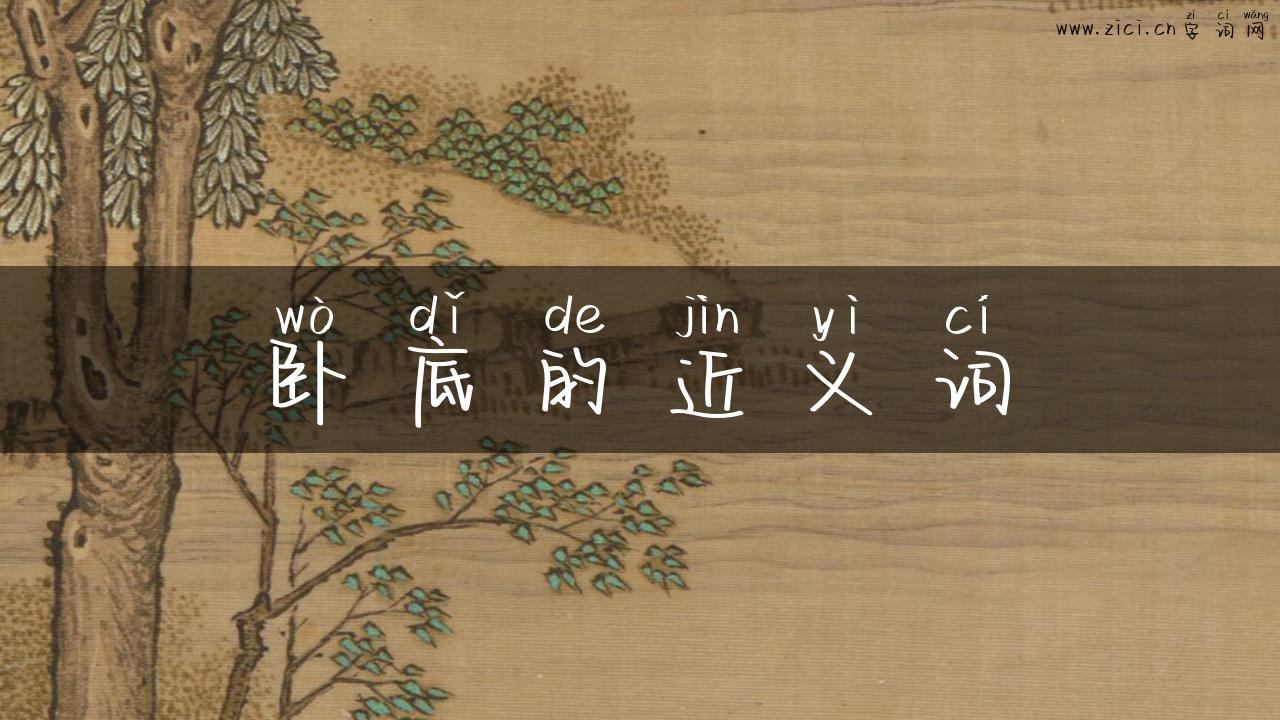 zì cí wǎng
www.zici.cn 字词网
wò dǐ de jìn yì cí
卧底的近义词